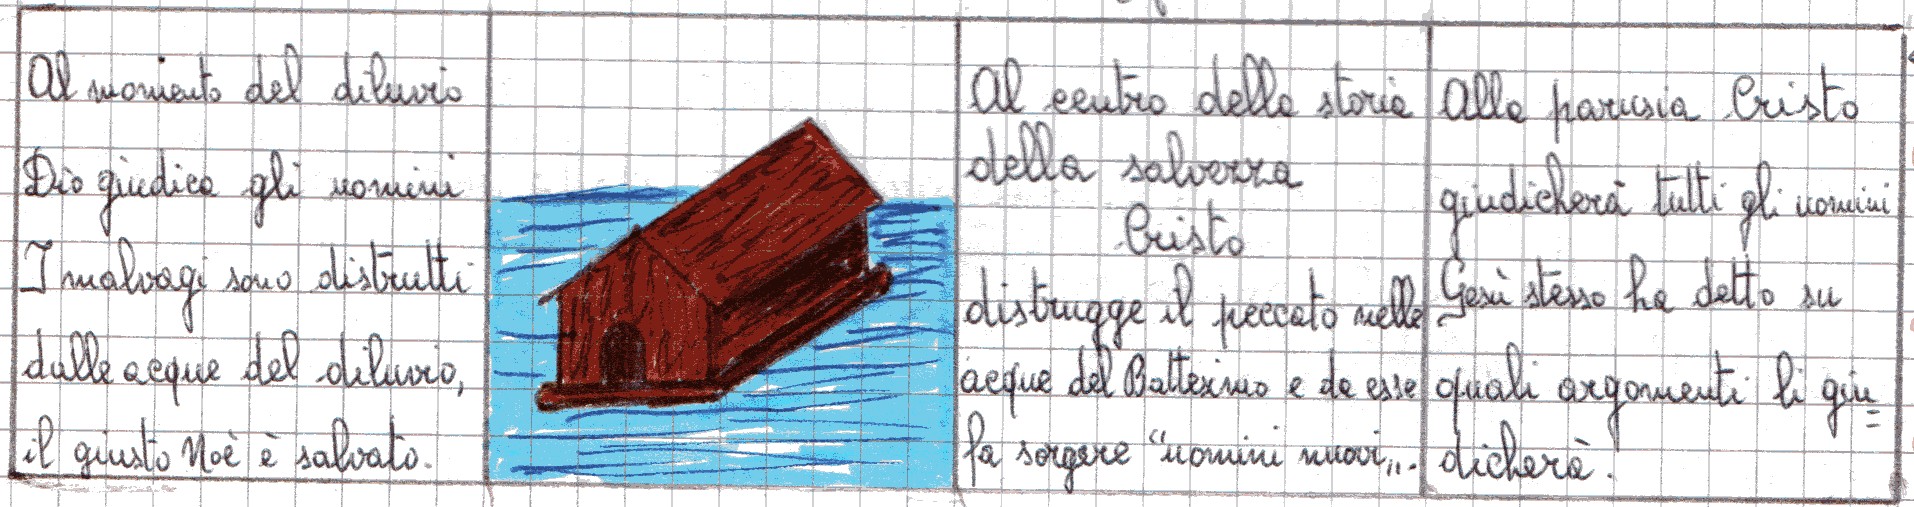 Al momento del diluvio
Dio giudica gli uomini
I malvagi sono distrutti
dalle acque del diluvio,
il giusto Noè è salvato.
Al centro della storia
della salvezza
Cristo
distrugge il peccato nelle
acque del Battesimo e da esse
fa sorgere "uomini nuovi".
Alla parusia Cristo
giudicherà tutti gli uomini
Gesù stesso ha detto su
quali argomenti li giu=
dicherà.